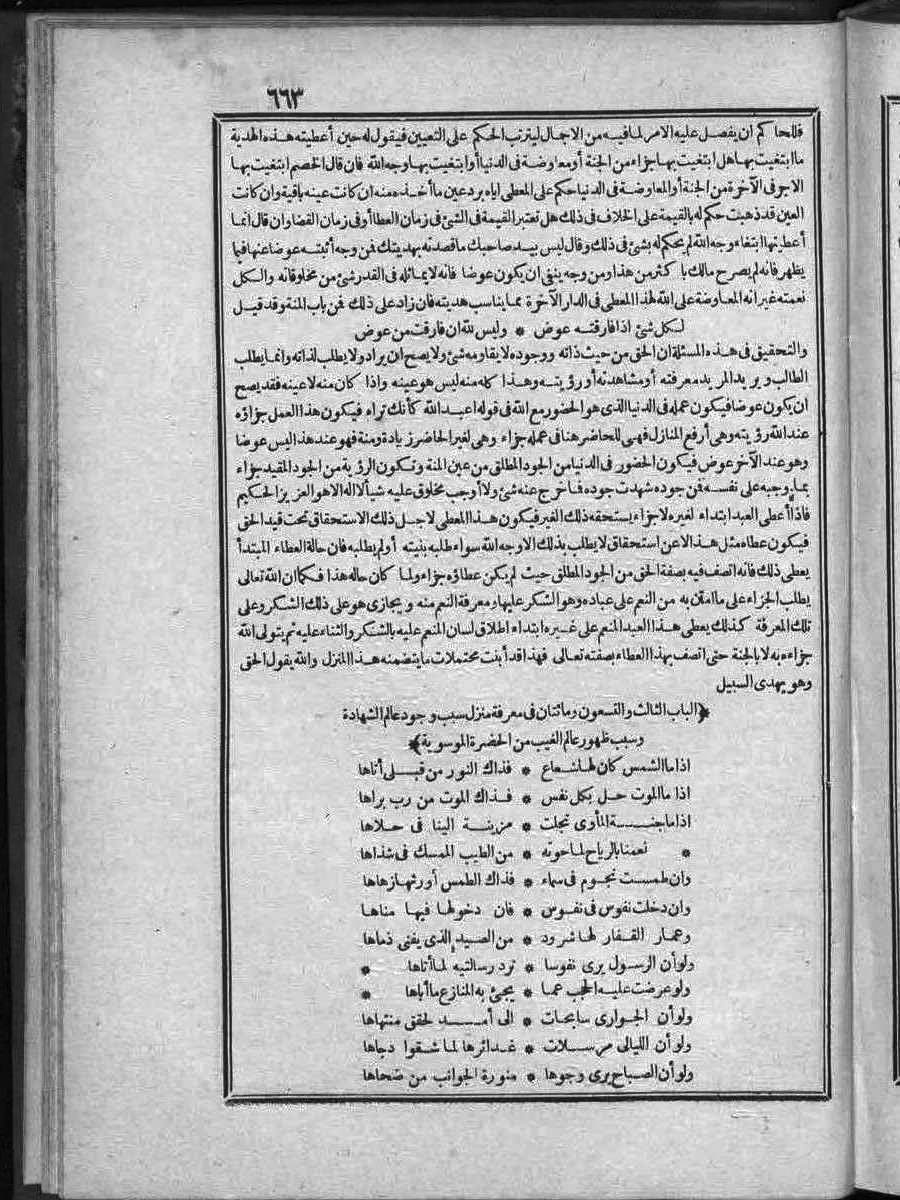 ٦٦٣
فللحاكم ان يفصل عليه الامر لما فيه من الاجمال ليترتب الحكم على التعيين فيقول له حين أعطيته هذه الهدية
ما ابتغيت بها هل ابتغيت بها جزاء من الجنة أو معاوضة فى الدنيا أو ابتغيت بها وجه الله فان قال الخصم ابتغيت بها
الاجر فى الآخرة من الجنة أو المعاوضة فى الدنيا حكم على المعطى اياه برد عين ما أخذه منه ان كانت عينه باقية وان كانت
العين قد ذهبت حكم له بالقيمة على الخلاف فى ذلك هل تعتبر القيمة فى الشئ فى زمان العطا أو فى زمان القضا وان قال انما
أعطيتها ابتغاء وجه الله لم يحكم له بشئ فى ذلك وقال ليس بيد صاحبك ما قصدته بهديتك فمن وجه أثبته عوضا عنها فيما
يظهر فانه لم يصرح مالك باكثر من هذا ومن وجه ينفى ان يكون عوضا فانه لا يماثله فى القدر شئ من مخلوقاته والكل
نعمته غير انه المعاوضة على الله لهذا المعطى فى الدار الآخرة بما يناسب هديته فان زاد على ذلك فمن باب المنة وقد قيل
لكل شئ اذا فارقته عوض * وليس لله ان فارقت من عوض
والتحقيق فى هذه المسئلة ان الحق من حيث ذاته ووجوده لا يقاومه شئ ولا يصح ان يراد ولا يطلب لذاته وانما يطلب
الطالب ويريد المريد معرفته أو مشاهدته أو رؤيته وهذا كله منه ليس هو عينه واذا كان منه لا عينه فقد يصح
ان يكون عوضا فيكون عمله فى الدنيا الذى هو الحضور مع الله فى قوله اعبد الله كأنك تراه فيكون هذا العمل جزاؤه
عند الله رؤيته وهى أرفع المنازل فهى للحاضر هنا فى عمله جزاء وهى لغير الحاضر زيادة ومنة فهو عند هذا ليس عوضا
وهو عند الآخر عوض فيكون الحضور فى الدنيا من الجود المطلق من عين المنة وتكون الرؤية من الجود المقيد جزاء
بما يوجبه على نفسه فمن جوده شهدت جوده فما خرج عنه شئ ولا أوجب مخلوق عليه شيأ لا اله الا هو العزيز الحكيم
فاذا أعطى العبد ابتداء لغيره لا جزاء يستحقه ذلك الغير فيكون هذا المعطى لاجل ذلك الاستحقاق تحت قيد الحق
فيكون عطاء مثل هذا لا عن استحقاق لا يطلب بذلك الا وجه الله سواء طلبه بنيته أو لم يطلبه فان حالة العطاء المبتدأ
يعطى ذلك فانه اتصف فيه بصفة الحق من الجود المطلق حيث لم يكن عطاؤه جزاء ولما كان حاله هذا فكما ان الله تعالى
يطلب الجزاء على ما امتن به من النعم على عباده وهو الشكر عليها ومعرفة النعم منه ويجازى هو على ذلك الشكر وعلى
تلك المعرفة كذلك يعطى هذا العبد المنعم على غيره ابتداء اطلاق لسان المنعم عليه بالشكر والثناء عليه ثم يتولى الله
جزاءه به لا بالجنة حتى اتصف بهذا العطاء بصفته تعالى فهذا قد أبنت محتملات ما يتضمنه هذا المنزل والله يقول الحق
وهو يهدى السبيل
﴿الباب الثالث والتسعون ومائتان فى معرفة منزل سبب وجود عالم الشهادة
وسبب ظهور عالم الغيب من الحضرة الموسوية﴾
اذا ما الشمس كان لها شعاع * فذاك النور من قبلى أتاها
اذا ما الموت حل بكل نفس * فذاك الموت من رب براها
اذا ما جنة المأوى تجلت * مزينة الينا فى حلاها
* نعمنا بالرياح لما حوته * من الطيب الممسك فى شذاها
وان طمست نجوم فى سماء * فذاك الطمس أورثها زهاها
وان دخلت نفوس فى نفوس * فان دخولها فيها مناها
وعمار القفار لها شرود * من الصيد الذى يفنى ذماها
ولو أن الرسول يرى نفوسا * ترد رسالتيه لما أتاها *
ولو عرضت عليه الحجب عما * يجئ به المنازع ما أباها *
ولو أن الجوارى سابحات * الى أمد لحقق منتهاها
ولو أن الليالى مرسلات * غدائرها لما شقوا دجاها
ولو أن الصباح يرى وجوها * منورة الجوانب من ضحاها